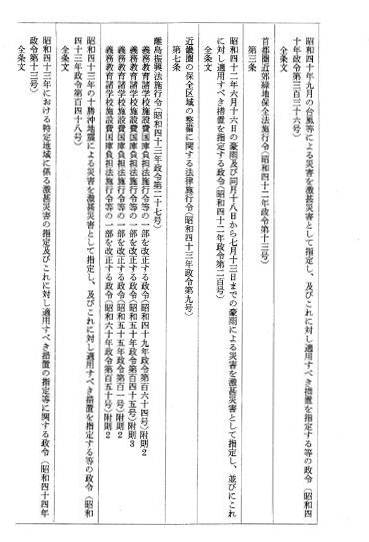 昭和四十年九月の台風等による災害を激甚災害として指定し、及びこれに対し適用すべき措置を指定する等の政令(昭和四
十年政令第三百三十六号)
全条文
首都圏近郊緑地保全法施行令(昭和四十二年政令第十三号)
第三条
昭和四十二年六月十六日の豪雨及び同月十八日から七月十三日までの豪雨による災害を激甚災害として指定し、並びにこれ
に対し適用すべき措置を指定する政令(昭和四十二年政令第二百号)
全条文
近畿圏の保全区域の整備に関する法律施行令(昭和四十三年政令第九号)
第七条
離島振興法施行令(昭和四十三年政令第二十七号)
義務教育諸学校施設費国庫負担法施行令等の一部を改正する政令(昭和四十九年政令第百六十四号)附則2
義務教育諸学校施設費国庫負担法施行令等の一部を改正する政令(昭和五十年政令第百四十五号)附則3
義務教育諸学校施設費国庫負担法施行令等の一部を改正する政令(昭和五十五年政令第百一号)附則2
義務教育諸学校施設費国庫負担法施行令等の一部を改正する政令(昭和六十年政令第百五十号)附則2
昭和四十三年の十勝沖地震による災害を激甚災害として指定し、及びこれに対し適用すべき措置を指定する等の政令(昭和
四十三年政令第百四十八号)
全条文
昭和四十三年における特定地域に係る激甚災害の指定及びこれに対し適用すべき措置の指定等に関する政令(昭和四十四年
政令第十三号)
全条文